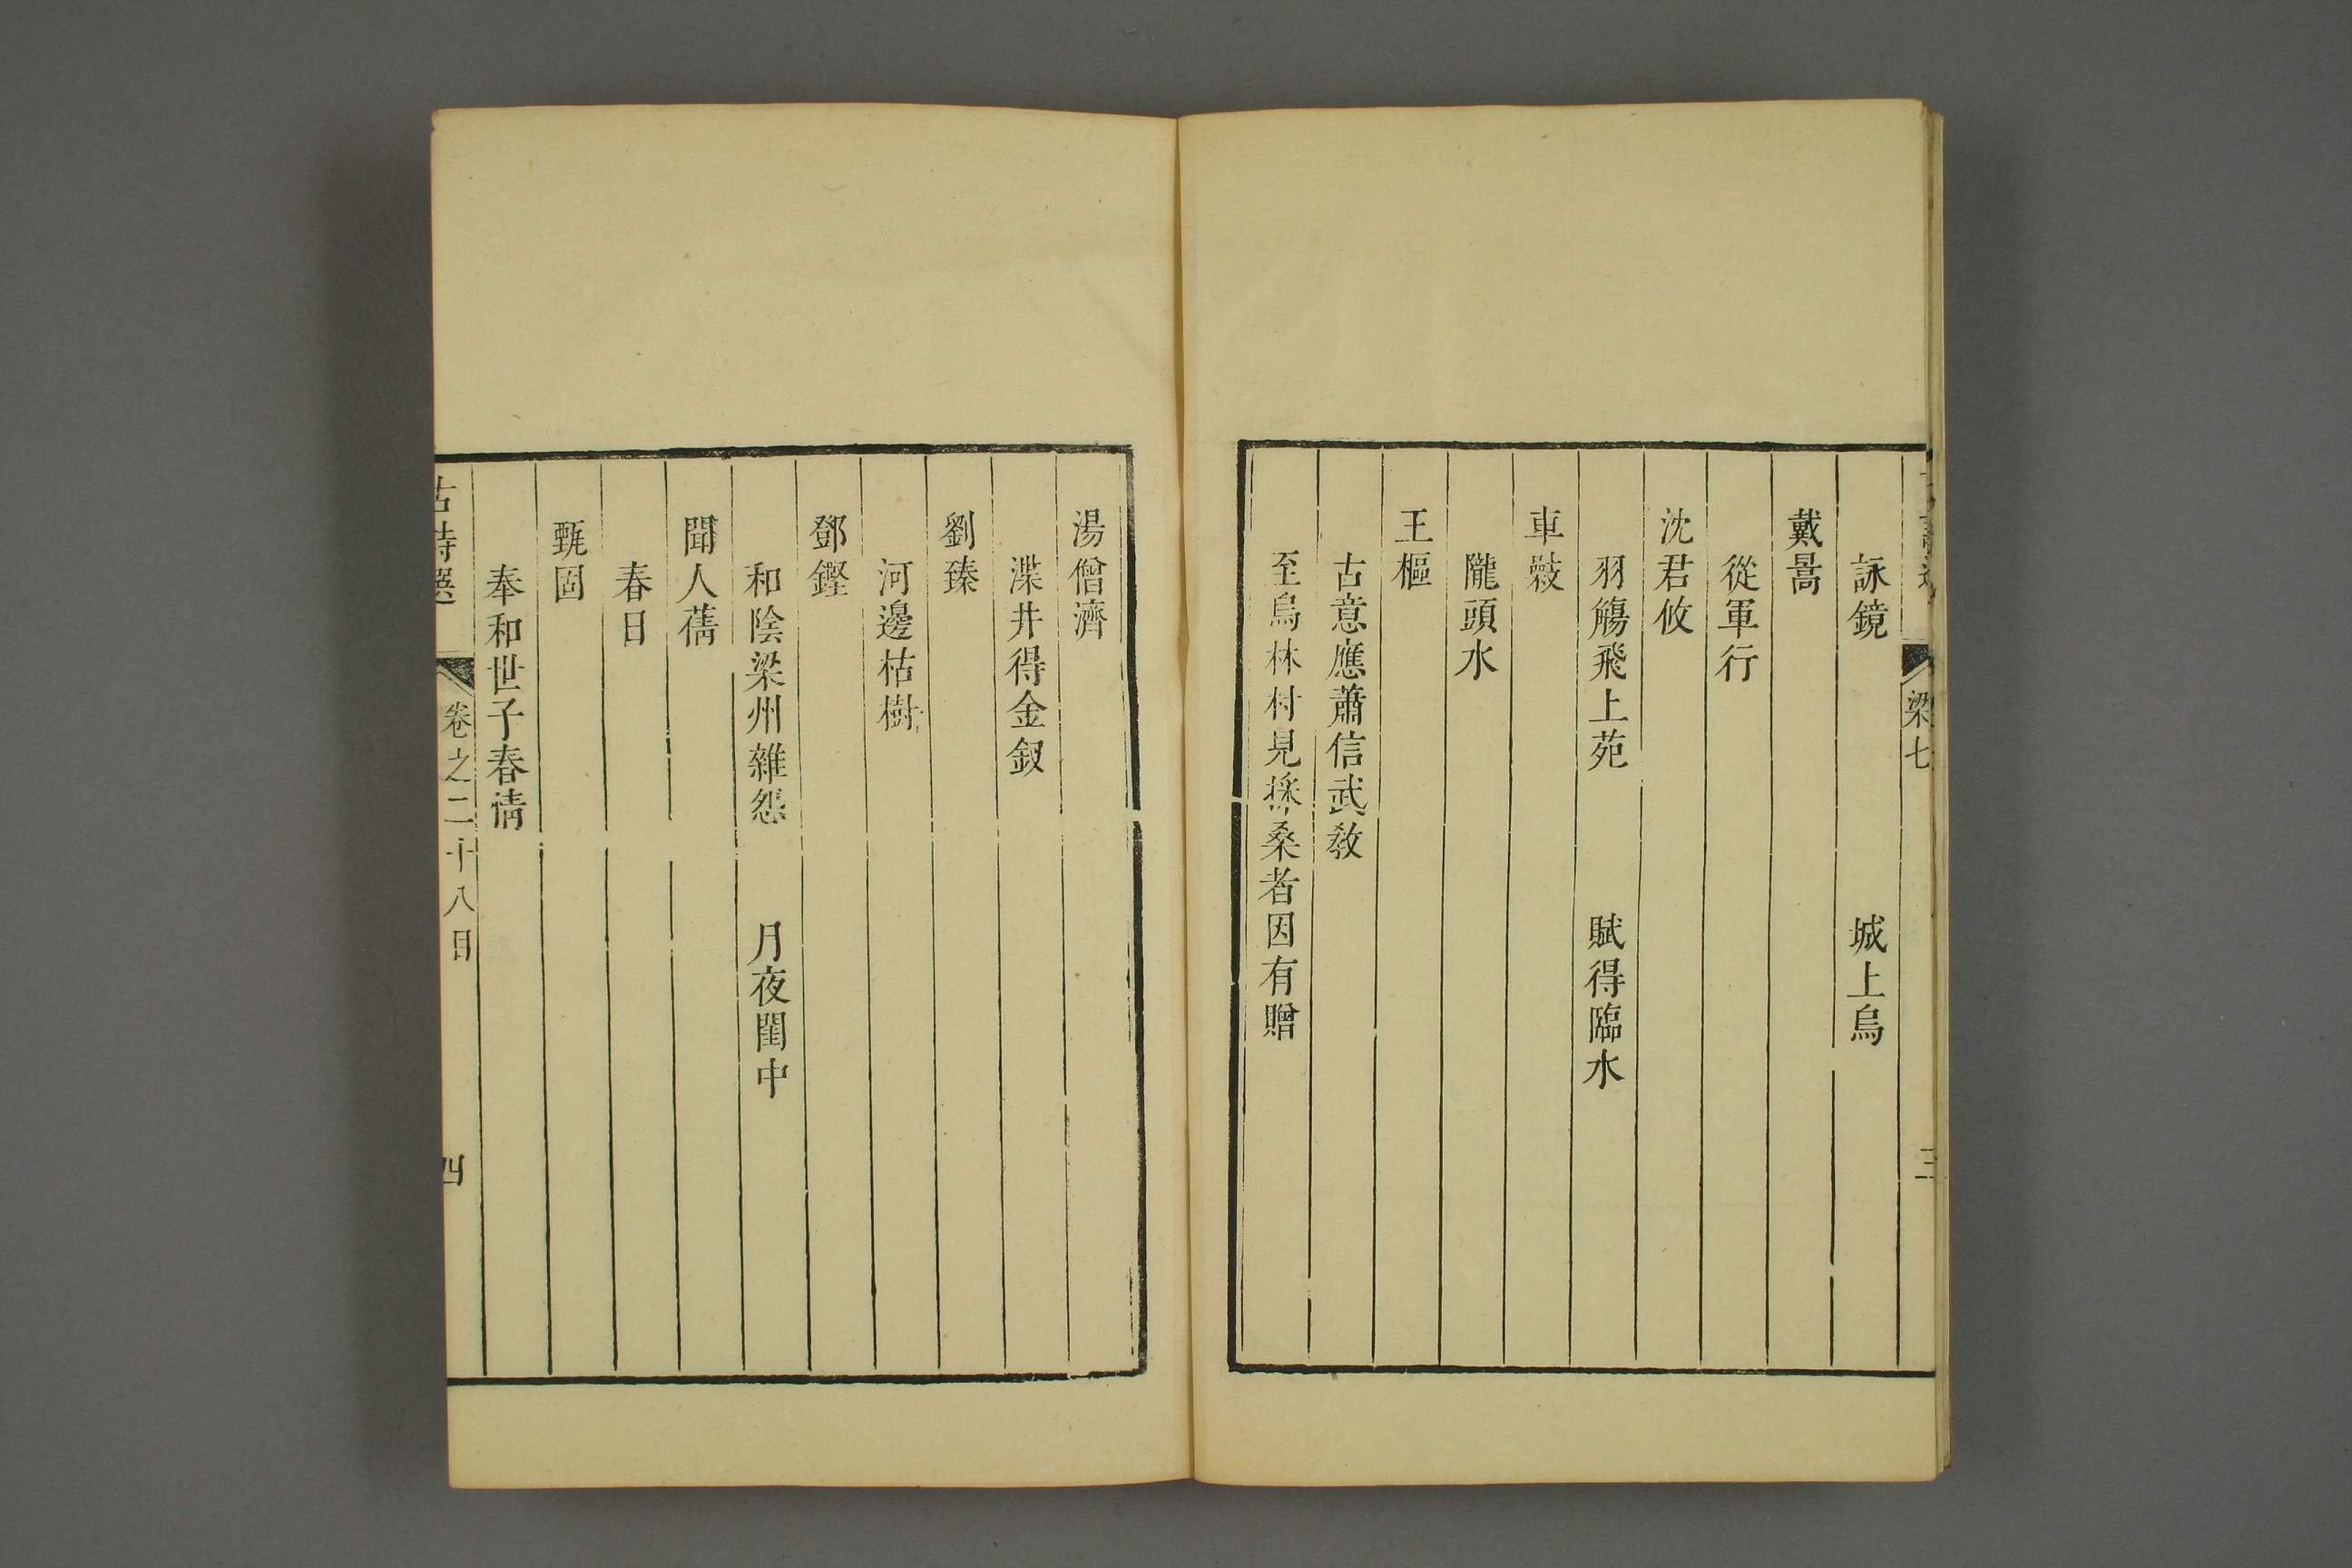 梁七
詠鏡　城上烏
戴暠
從軍行
沈君攸
羽觴飛上苑　賦得臨水
車𢿣
隴頭水
王樞
古意應蕭信武教
至烏林村見採桑者因有贈
湯僧濟
渫井得金釵
劉臻
河邊枯樹
鄧鏗
和陰梁州雜怨　月夜閨中
聞人蒨
春日
甄固
奉和世子春情
古詩選　卷之二十八目　四